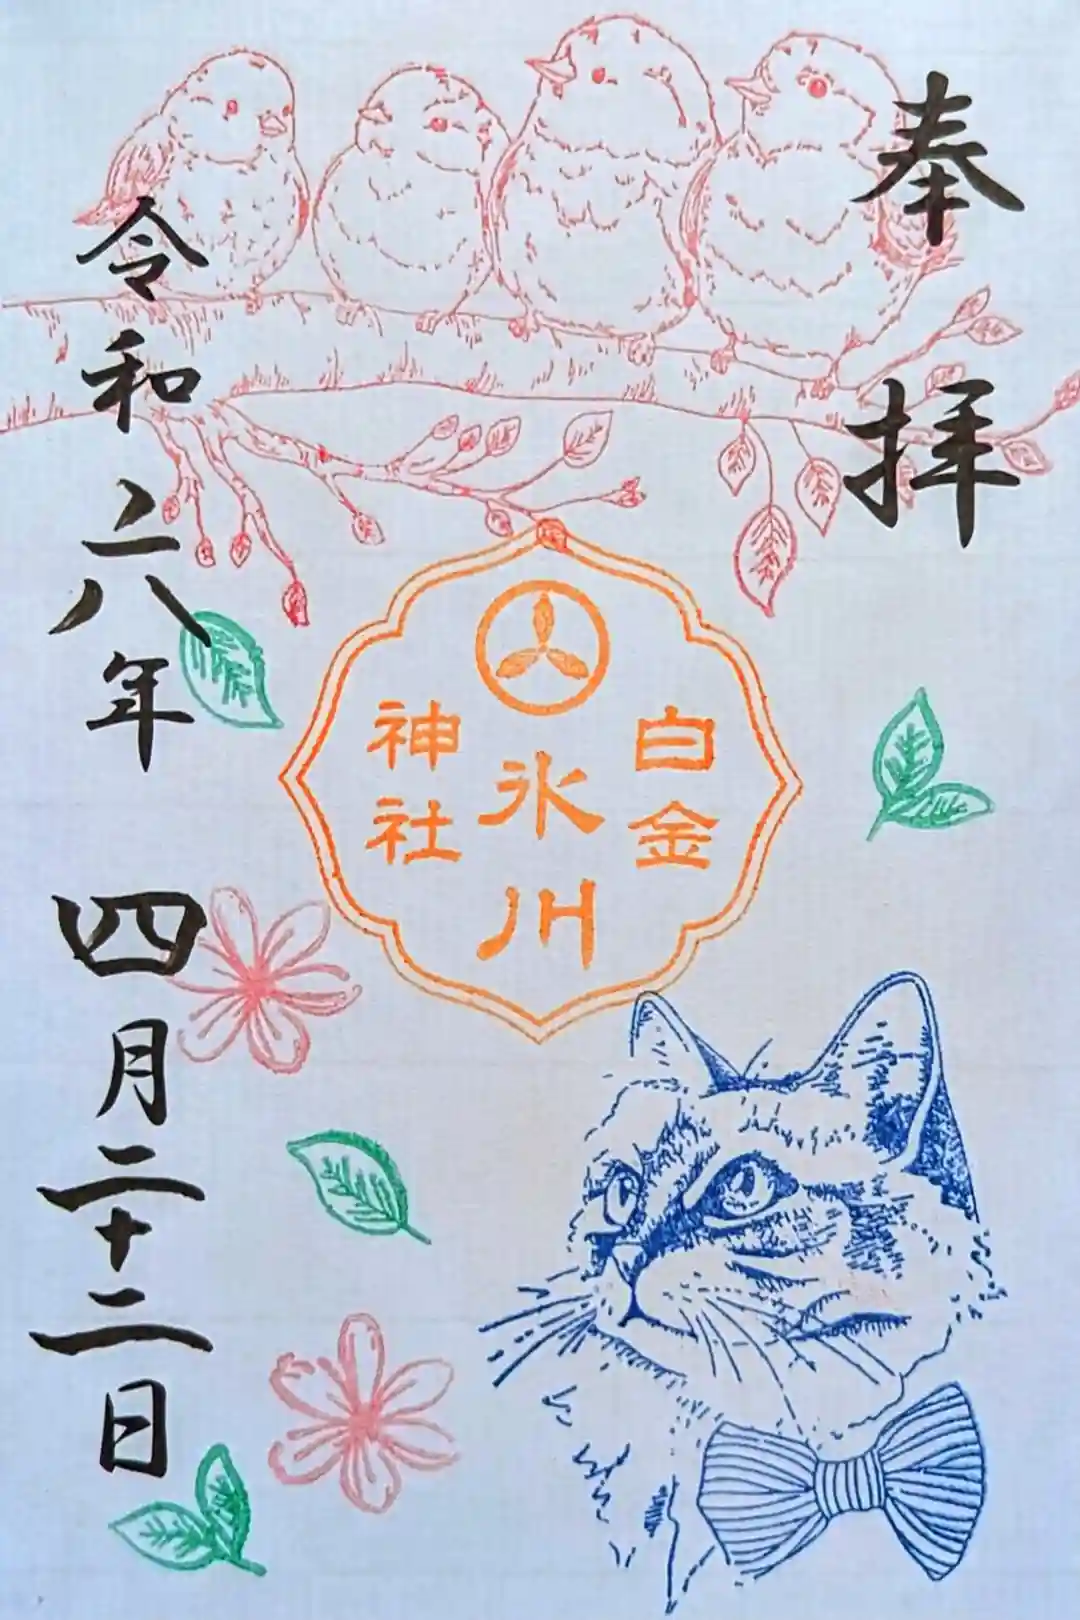 奉拝
白金
氷川
神社
令和六年
四月二十二日